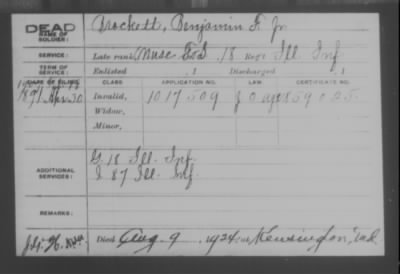 DEAD
NAME OF SOLDIER: Brockett, Benjamin F. Jr
SERVICE: Late rank Musc F&S, 18 Reg't Ill. Inf
TERM OF SERVICE: Enlisted , 1 Discharged , 1
DATE OF FILING: CLASS APPLICATION NO. LAW CERTIFICATE NO.
1891 Apr 30 Invalid, 1017509 859025
Widow,
Minor,
ADDITIONAL SERVICES: G 18 Ill. Inf.
I 87 Ill. Inf.
REMARKS:
Died Aug. 9, 1924 at Kensington, Md.